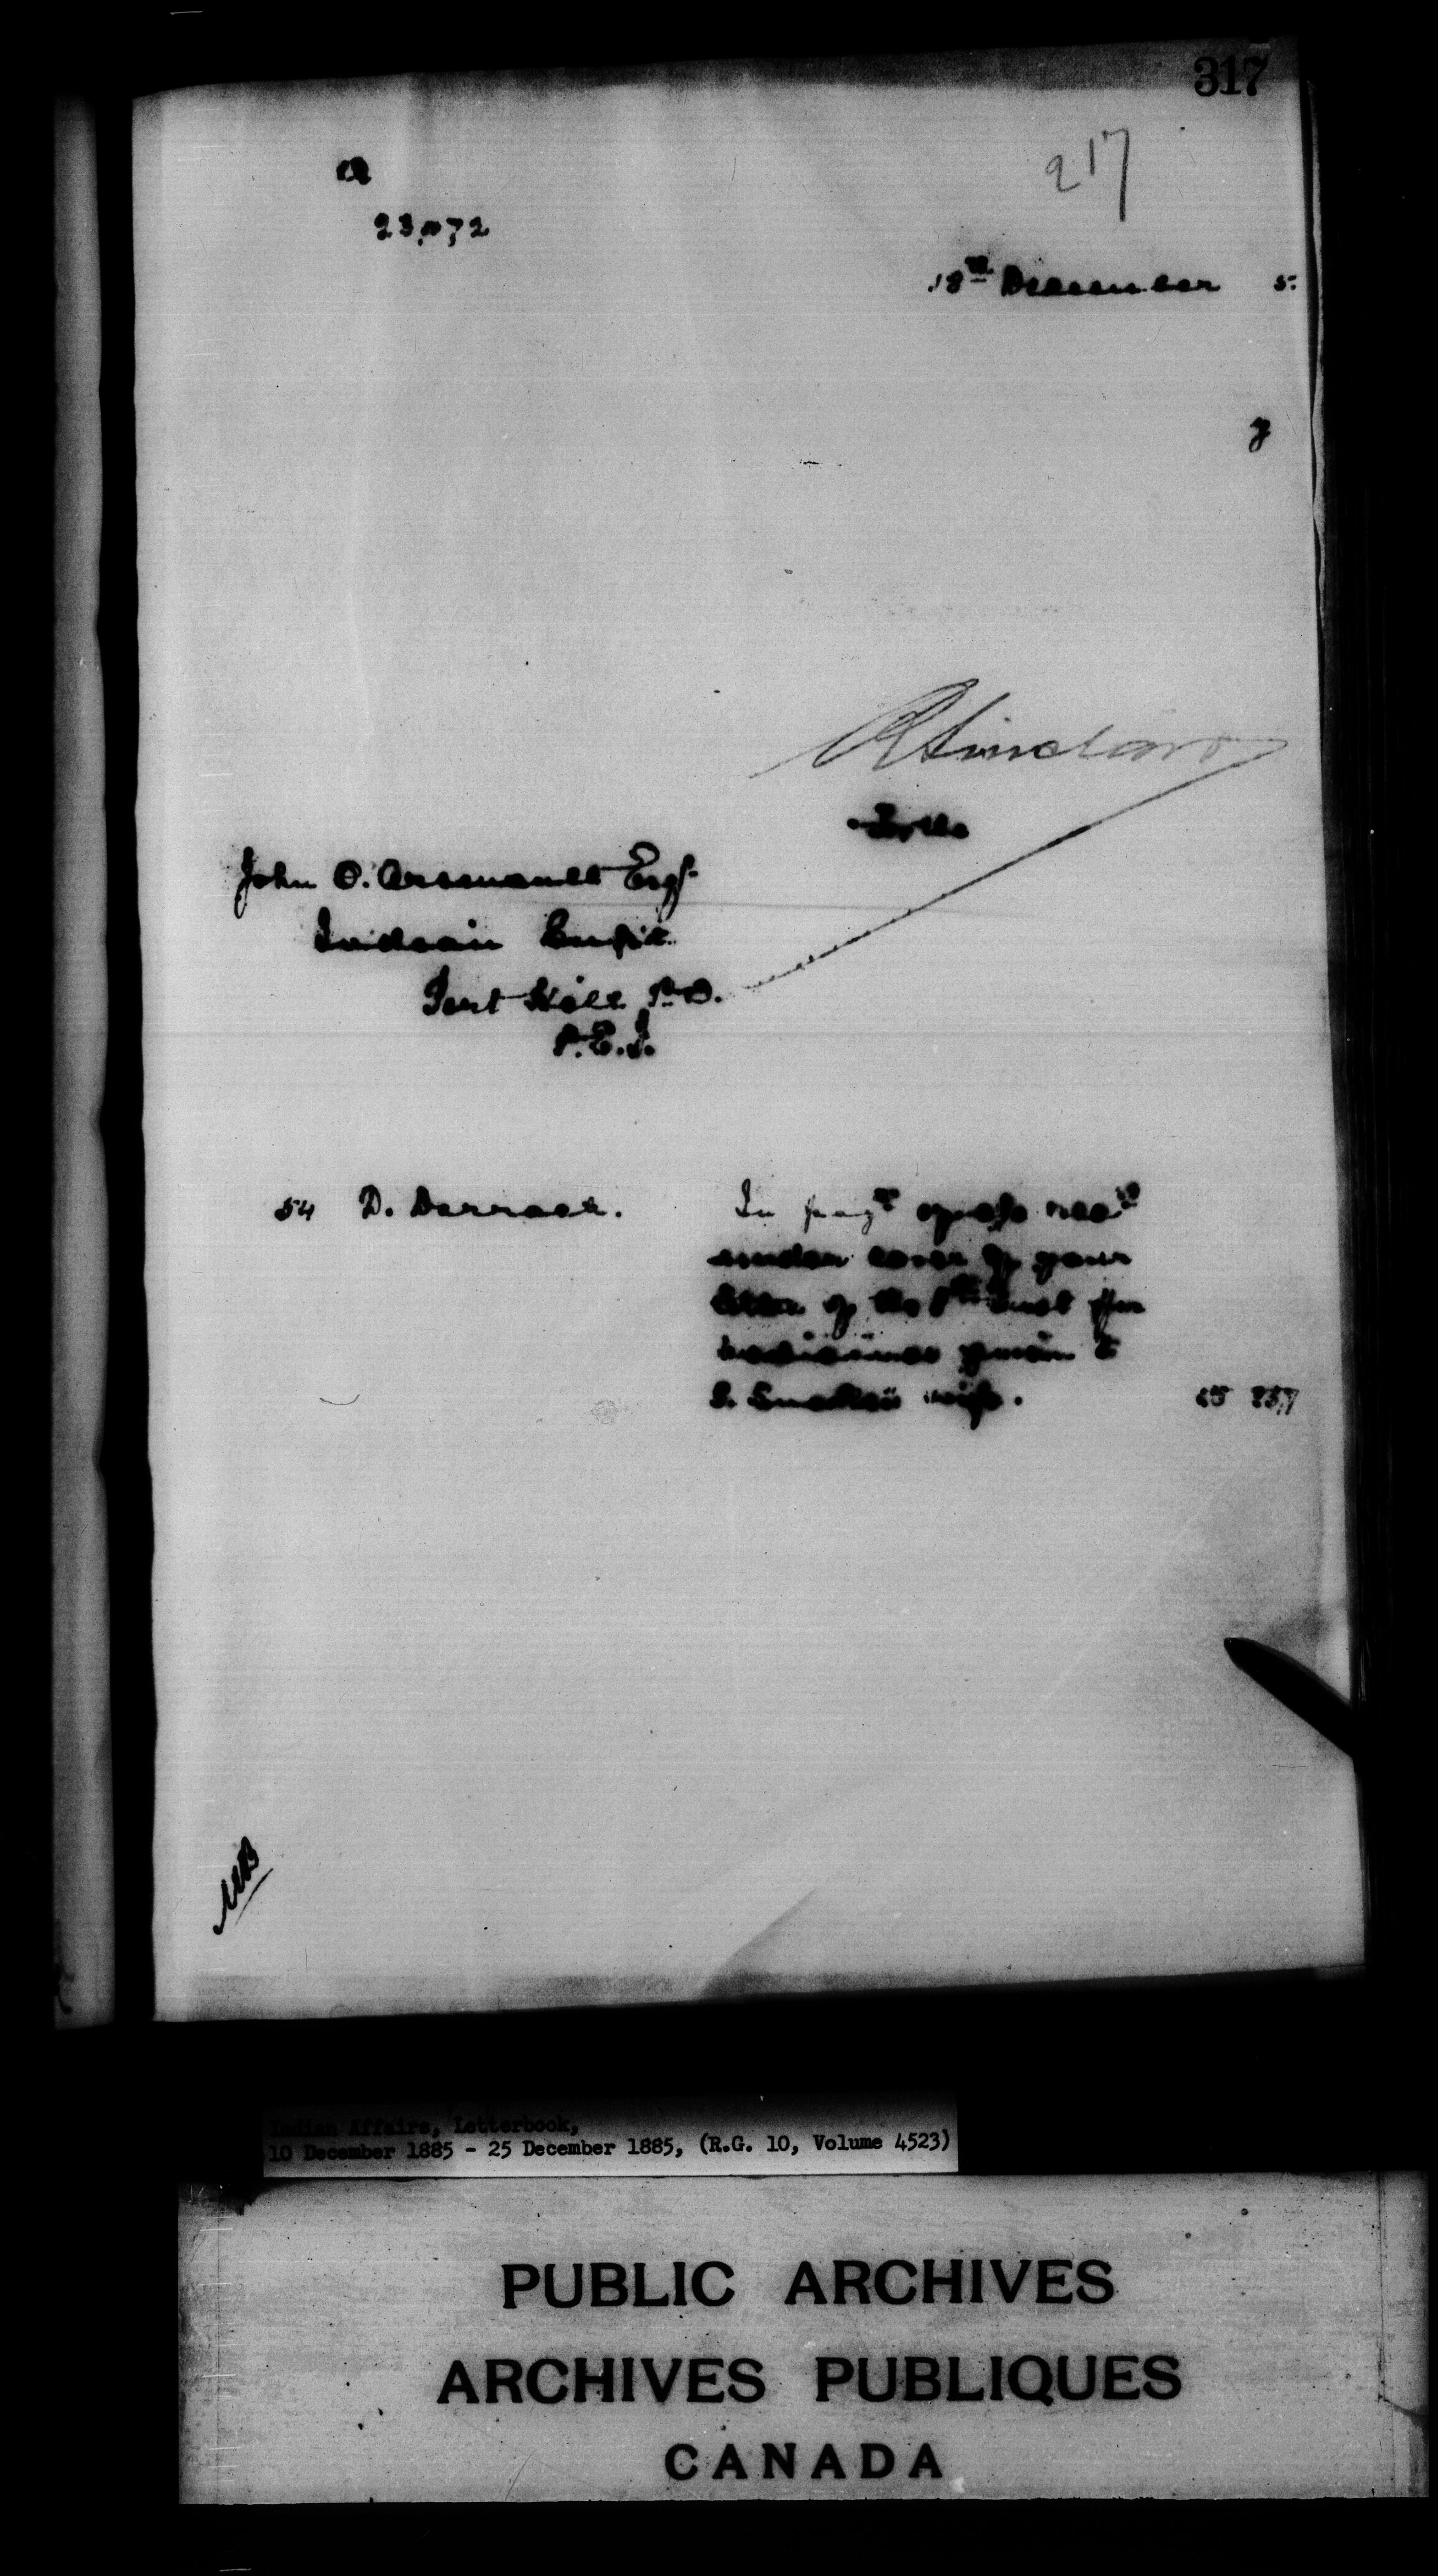 317
217
18th December 5.
y
R Sinclair
For the
John O. Arsenault Esq.
Indian Supt.
Port Hill P.O.
P.E.I.
54 D. Darrach. In paym't of a/c rec'd
under cover of your
letter of the inst for
medicines given to
S. wife.
Indian Affairs, Letterbook,
10 December 1885 - 25 December 1885, (R.G. 10, Volume 4523)
PUBLIC ARCHIVES
ARCHIVES PUBLIQUES
CANADA